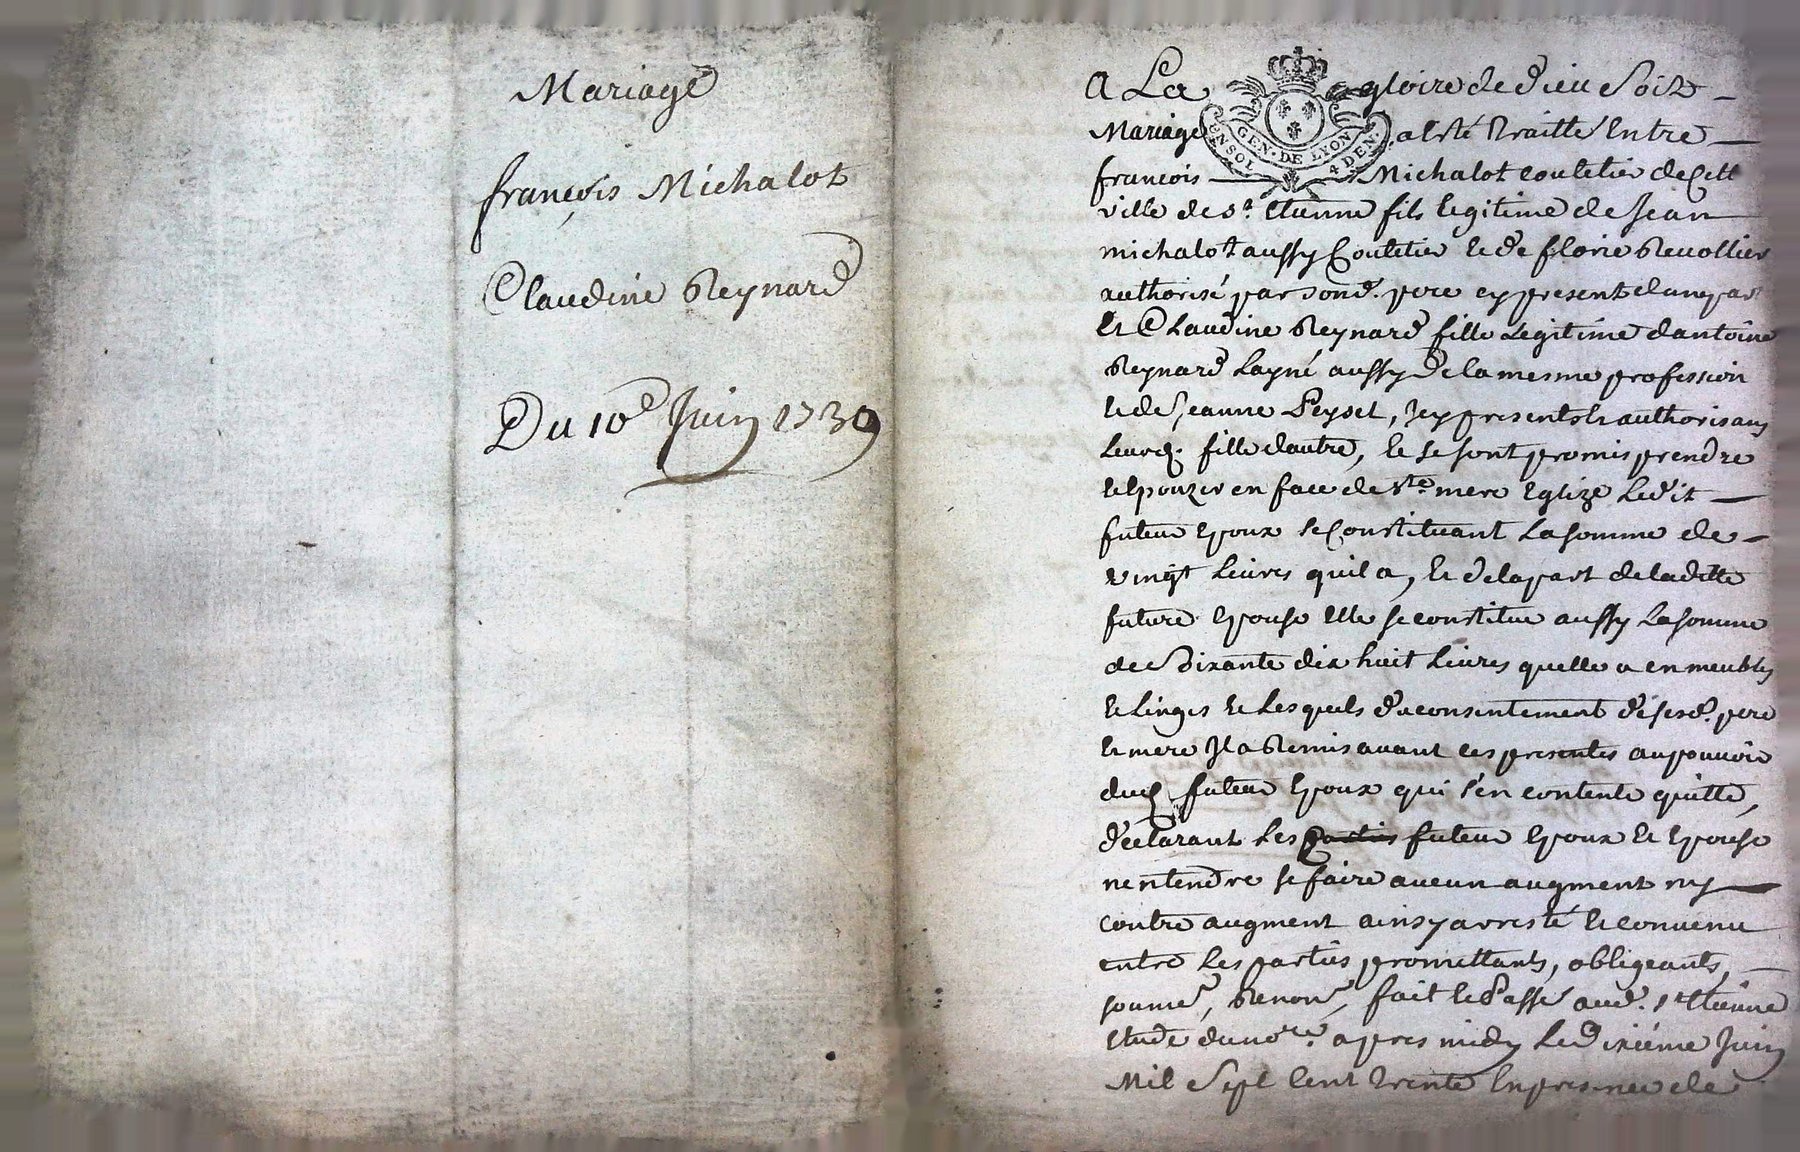 Mariage
françois Michalot
Claudine Reynard
Du 10e Juin 1730
A La gloire de dieu soit
GEN · DE LYON
UN SOL 4 DEN.
Mariage a esté traitté Entre
françois Michalot coutelier de Cett
ville de st Etienne fils legitime de Jean
michalot aussy Coutelier et de florie Revollier
authorisé par son d. pere cy present d'une part
Et Claudine Reynard fille Legitime d'antoine
Reynard L'ayné aussy de la mesme profession
et de Jeanne Peyret, icy presents et authorisans
leurd. fille d'autre, et se sont promis prendre
et Epouzer en face de ste mere Eglize Ledit
futeur Epoux se Constituant La somme de
vingt Livres quil a, et de la part de laditte
future Epouse Elle se constitue aussy La somme
de soixante dix huit Livres quelle a en meubles
et Linges et Lesquels du consentement de sesd. pere
et mere Il a Remis avant ces presentes au pouvoir
dud. futeur Epoux qui s'en contente quitte,
declarant Les parties futeur Epoux et Epouse
n'entendre se faire aucun augment ny
contre augment ainsy arresté et convenu
entre Les parties promettants, obligeants,
soume, Renon, fait et Passé aud. st Etienne
Etude du nore. apres midy Le dixiéme Juin
Mil Sept Cent trente En presence de